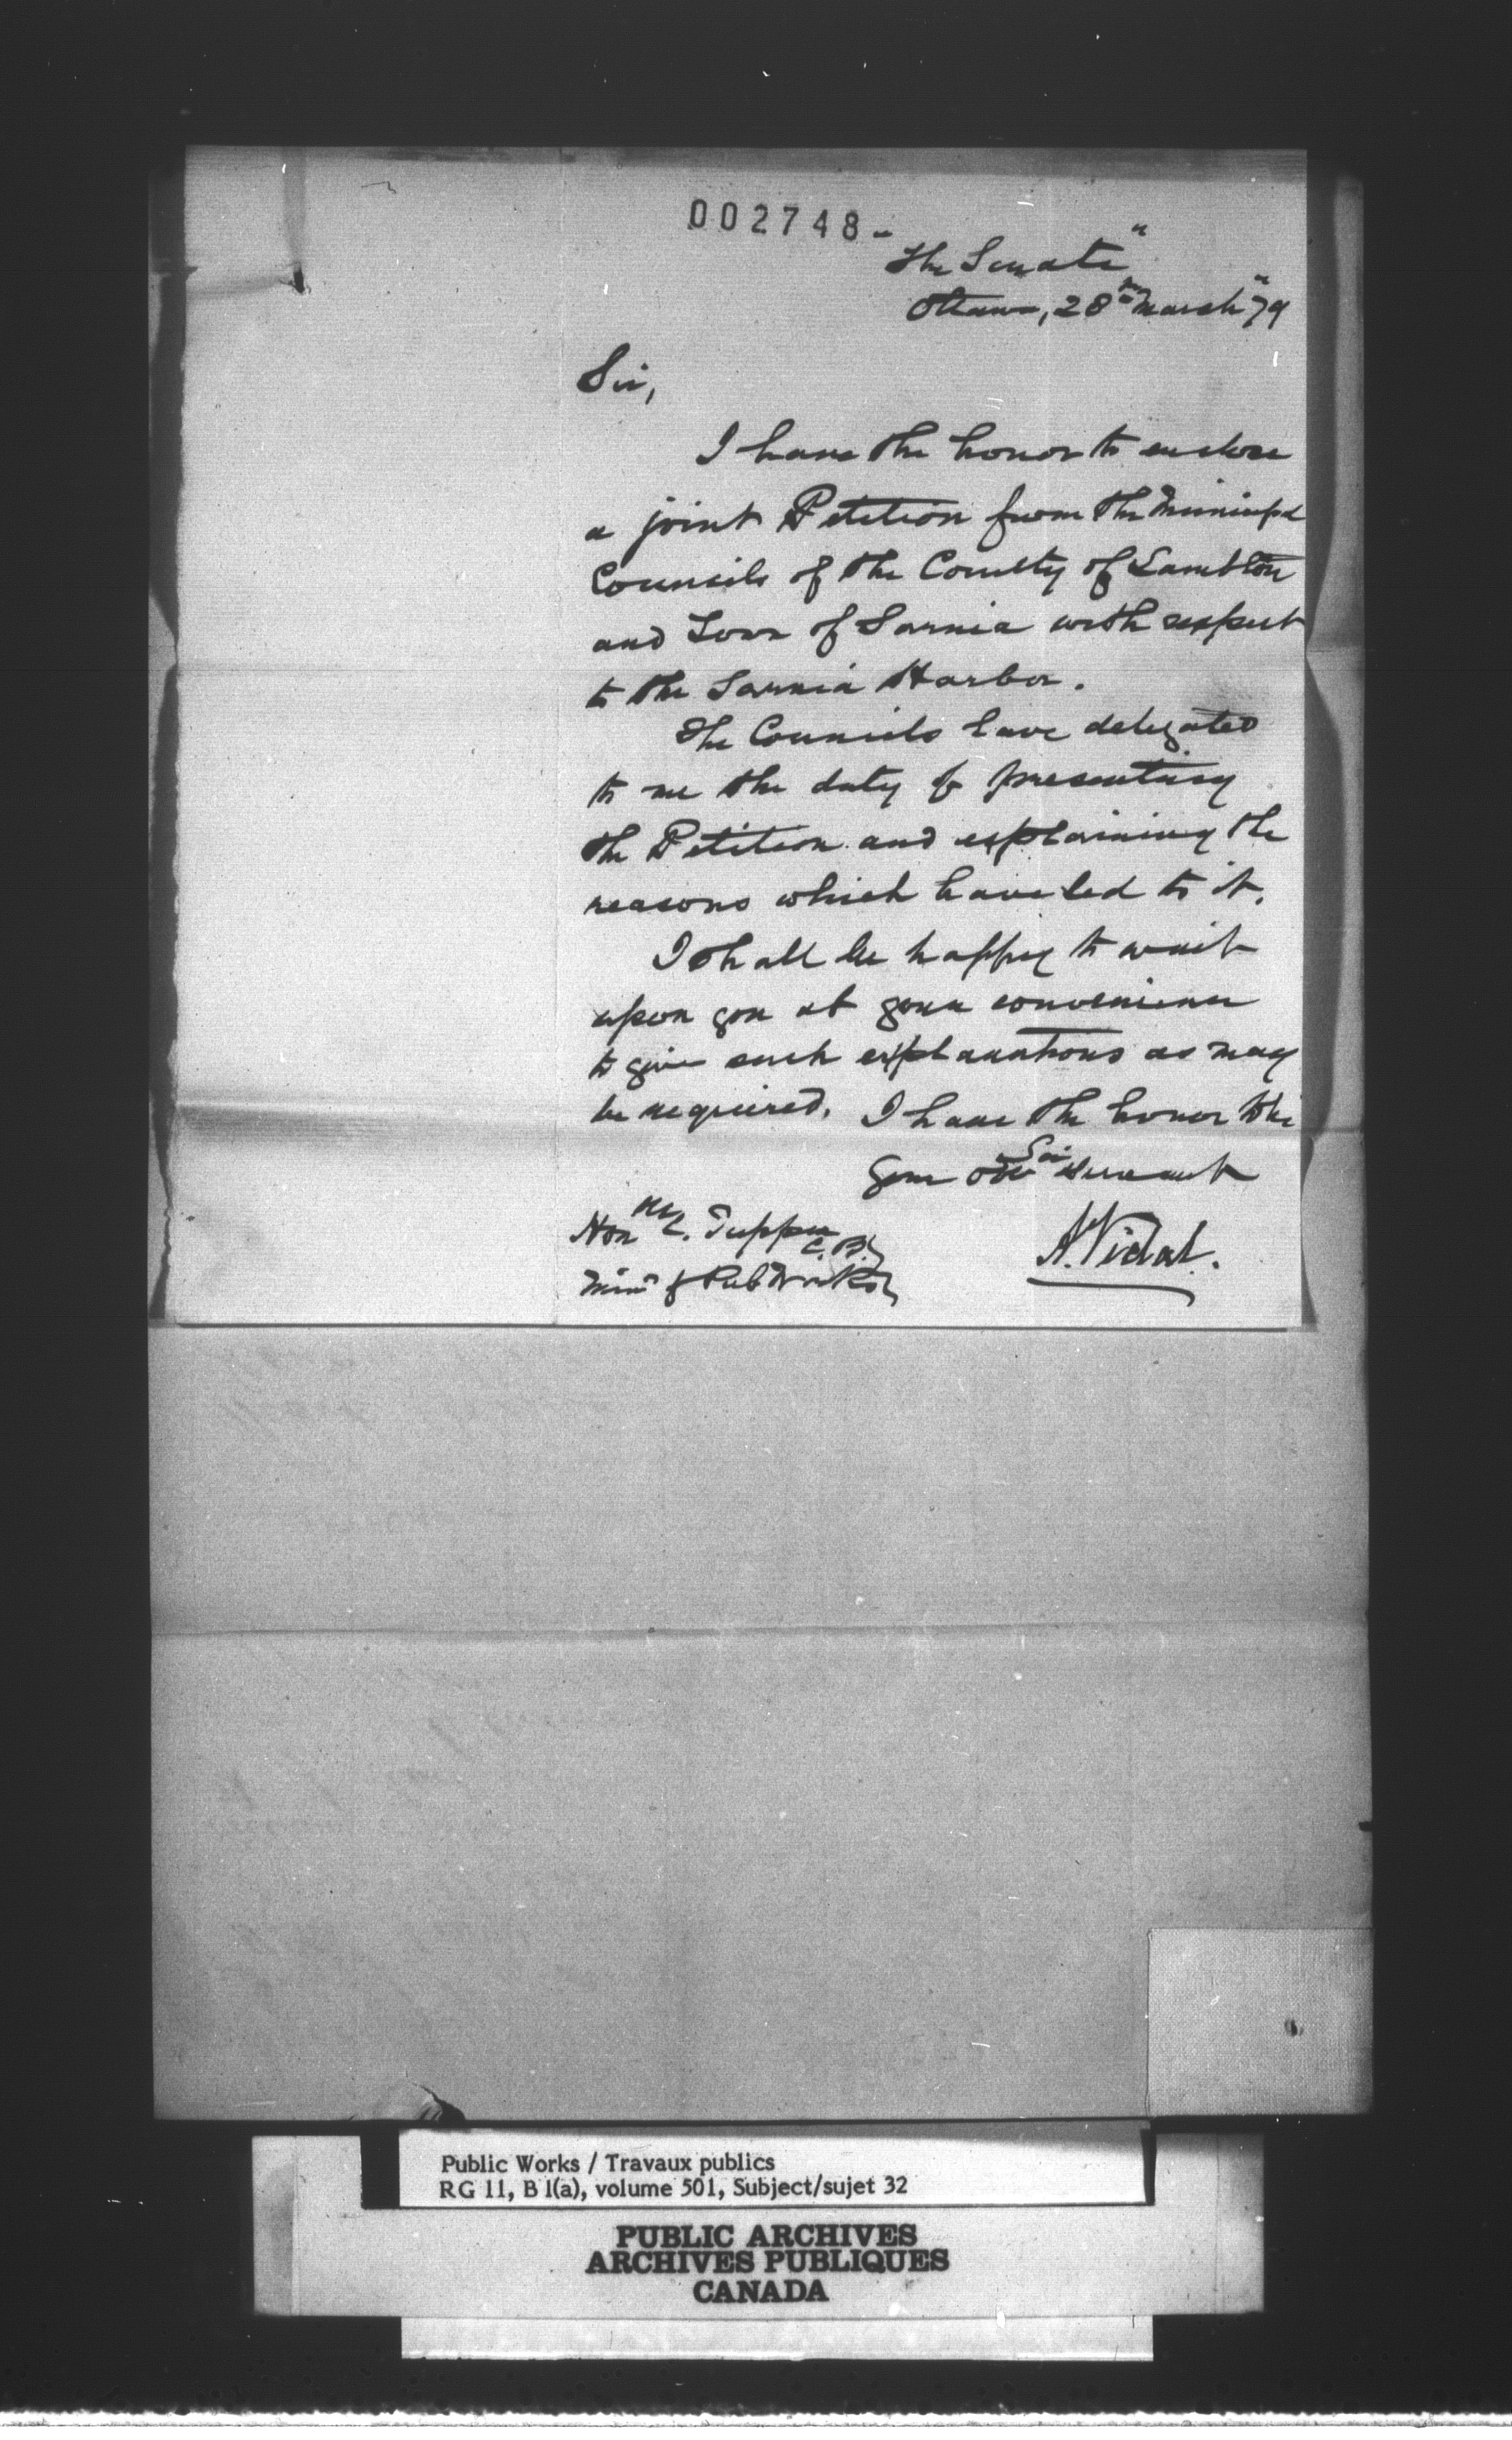 002748-
The Senate
Ottawa, 28th March "79
Sir,
I have the honor to enclose
a joint Petition from the Municipal
Councils of the County of Lambton
and Town of Sarnia with respect
to the Sarnia Harbor.
The Councils have delegated
to me the duty of presenting
the Petition and explaining the
reasons which have led to it.
I shall be happy to wait
upon you at your convenience
to give such explanations as may
be required. I have the honor to be
Sir
Your obt servant
Honble C. Tupper C.B.
A. Vidal.
Minr of Pub Works
Public Works / Travaux publics
RG 11, B 1(a), volume 501, Subject/sujet 32
PUBLIC ARCHIVES
ARCHIVES PUBLIQUES
CANADA